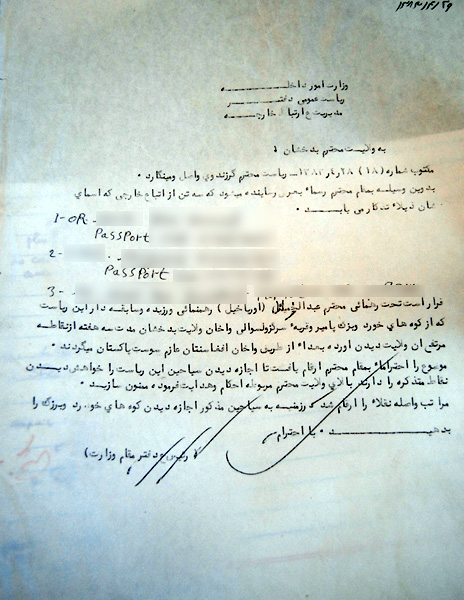 وزارت امور داخلـــــه
ریاست عمومی دفتــــــر
مدیریت ع ارتباط خارجـــه
به ولایت محترم بدخشان ؛
مکتوب شماره (۱۸) ۲۸ر۴ر ریاست محترم گرزندوی واصل ومینگارد ۰
بدین وسیله بمقام محترم رسماً بعرض رسانیده میشود که سه تن از اتباع خارجی که اسمای
شان ذیلاً تذکار می یابــــــد ۰
1- OR-
PassPort
2-
PassPort
3-
قرار است تحت رهنمائی محترم (اوریاخیل) رهنمائی ورزیده وسابقه دار این ریاست
که از کوه های خورد وبزرگ پامیر وقریه سرگزولسوالی واخان ولایت بدخشان مدت سه هفته ازنقاطـــه
مرتفع ان ولایت دیدن اورده بعداً از طریق واخان افغانستان عازم سوست پاکستان میگردند ۰
موضوع را احتراماً بمقام محترم ارقام تا اجازه دیدن سیاحین این ریاست را خواهش دیــدن
نقاط متذکره را دارند بالای ولایت محترم مربوطه احکام وهدایت فرموده ممنون سازیــد ۰
مرا تب واصله نقلاً ارقام شد درزمینه به سیاحین مذکور اجازه دیدن کوه های خورد وبزرگ را
بدهیــــــد ۰ با احترام
( رئیس ع دفتر مقام وزارت)